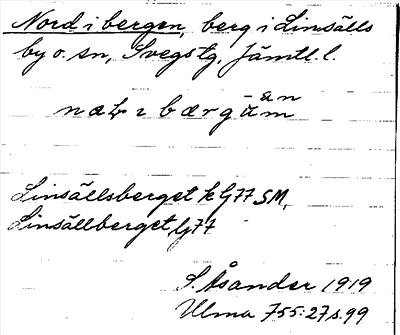 Nord i bergen, berg i Linsälls
by o. sn, Svegs tg, Jämtl. l.
Linsällsberget k G77 SM,
Linsällberget, G77
S. Åsander 1919
Ulma 755:27 s. 99